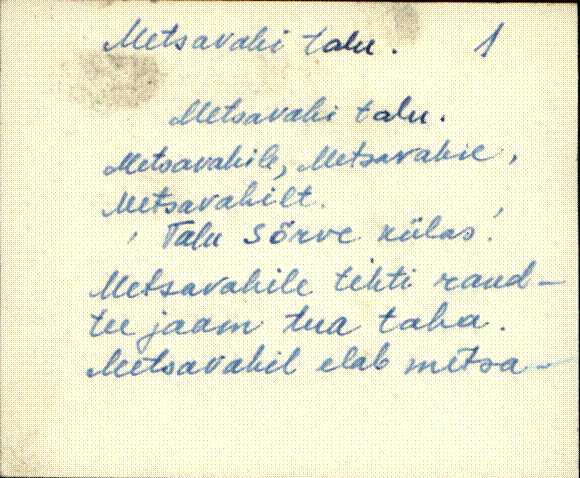 Metsavahi talu. 1
Metsavahi talu.
Metsavahile, Metsavahil,
Metsavahilt.
'Talu Sõrve külas.'
Metsavahile tehti raud-
tee jaam tua taha.
Metsavahil elab metsa-